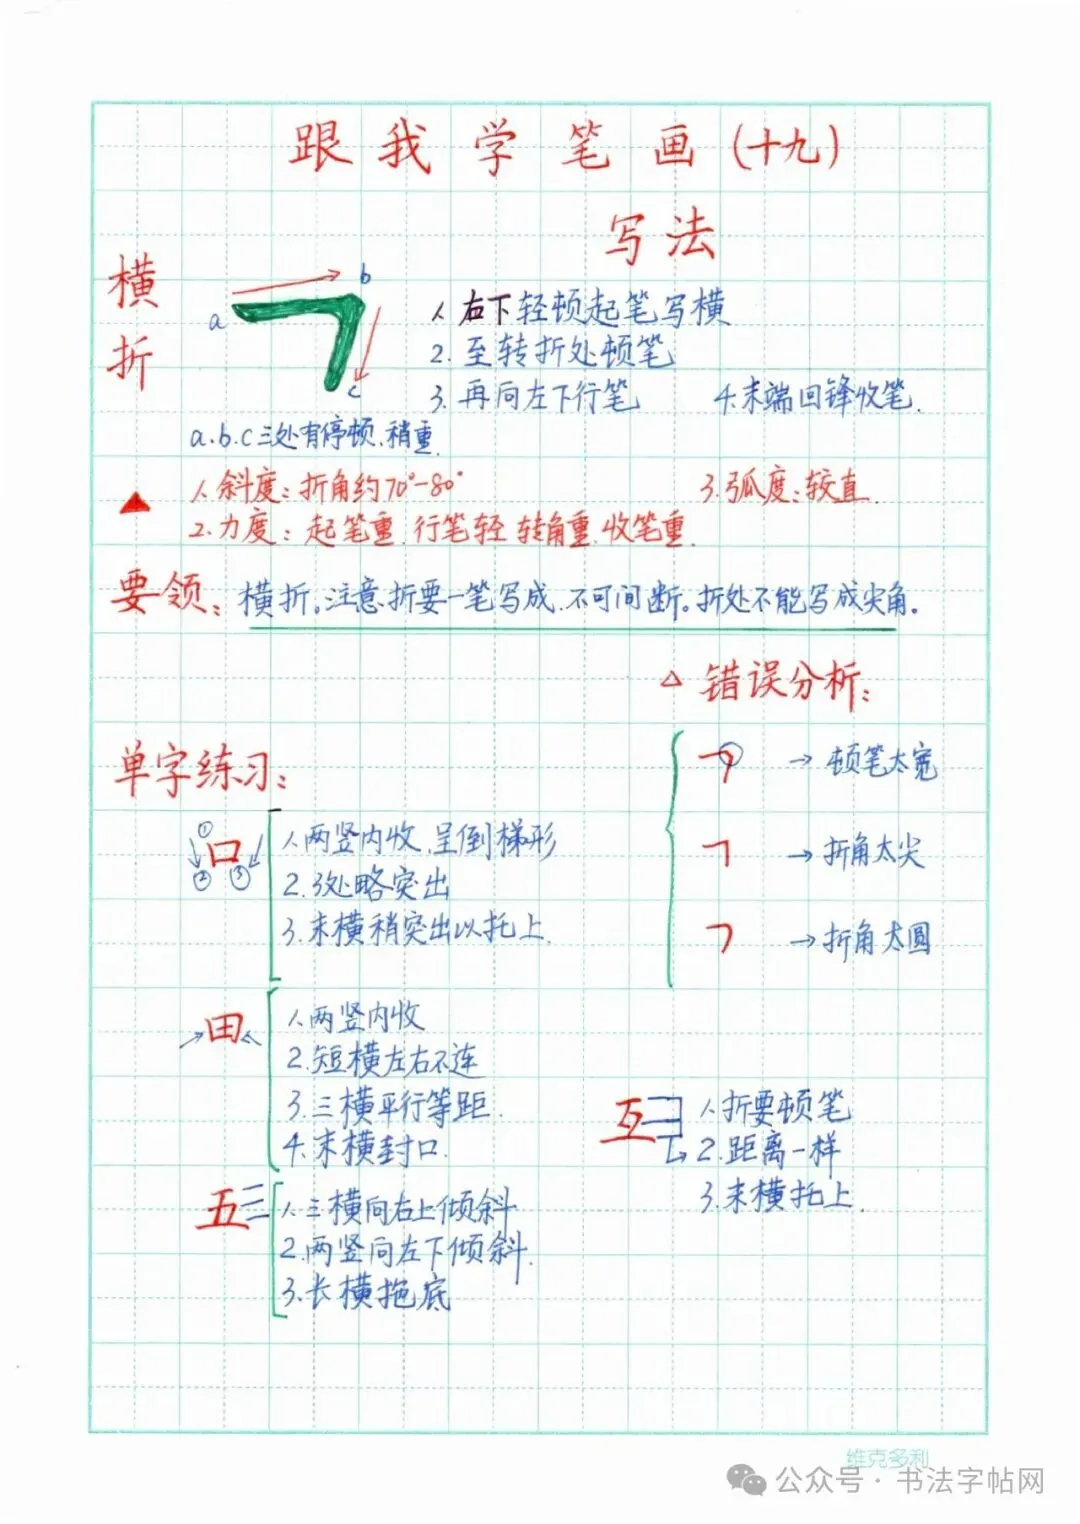 跟我学笔画(十九)
横折
写法
a
b
c
1.右下轻顿起笔写横
2.至转折处顿笔
3.再向左下行笔 4.末端回锋收笔.
a.b.c三处有停顿、稍重.
1.斜度:折角约70°-80° 3.弧度:较直.
2.力度:起笔重.行笔轻 转角重.收笔重.
要领:横折。注意折要一笔写成、不可间断。折处不能写成尖角。
△错误分析:
→顿笔太宽
→折角太尖
→折角太圆
单字练习:
口
①
②
③
1.两竖内收、呈倒梯形
2.3处略突出
3.末横稍突出以托上.
田
1.两竖内收
2.短横左右不连
3.三横平行等距.
4.末横封口.
互
1.折要顿笔
2.距离一样
3.末横托上.
五
1.三横向右上倾斜
2.两竖向左下倾斜.
3.长横拖底
维克多利
公众号·书法字帖网